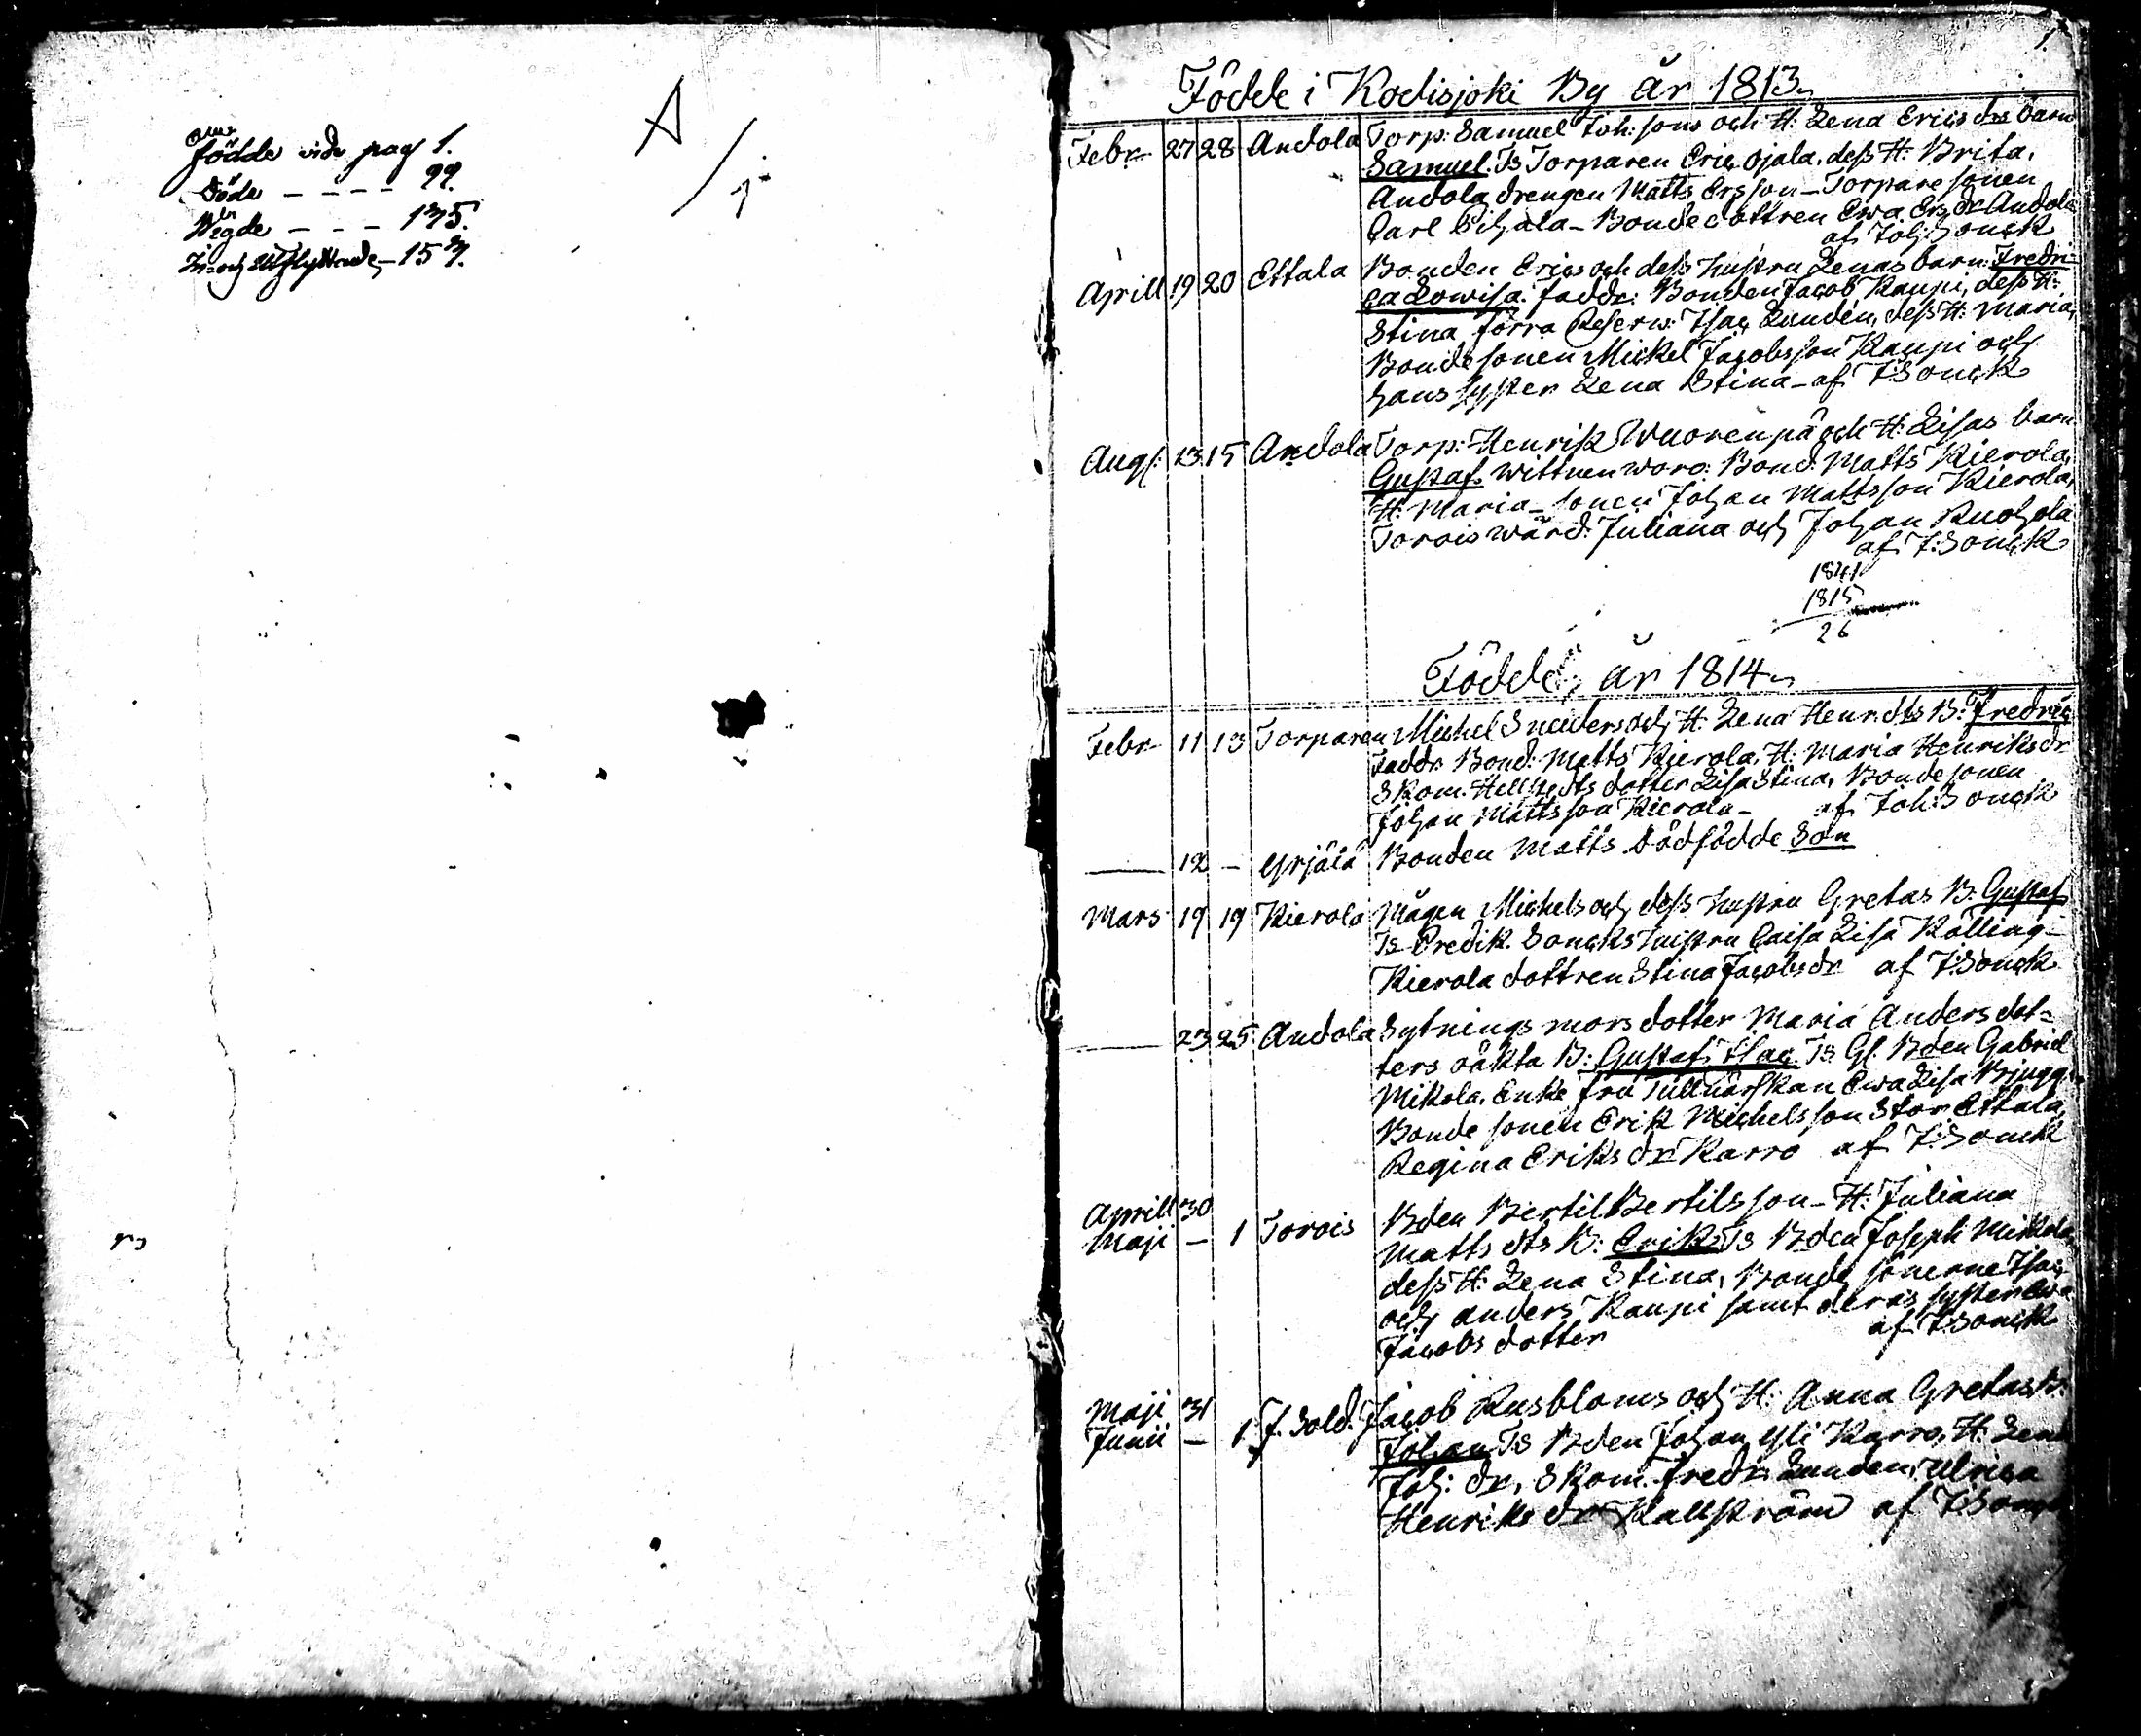 födde vide pag 1.
Döde - - - - 99.
Wigde - - - 135.
In- och Utflyttade - 157.
A
1
1.
Födde i Kodisjoki By år 1813
Febr 27 28 Andola Torp: Samuel Joh:sons och H: Lena Erics drs barn
Samuel. Ts Torparen Eric Ojala, dess H: Brita,
Andola drengen Matts Ersson - Torpare sonen
Carl - Bonde dottren Ewa Ers dr Andola
af Joh Sonck
Aprill 19 20 Ettala Bonden Erics och dess hustru Lenas barn: Fredri-
ca Lowisa. faddr: Bonden Jacob Kaupi, dess H:
Stina förra Reserw: Isac Lunden, dess H: Maria,
Bonde sonen Mickel Jacobsson Kaupi och
hans syster Lena Stina - af J:Sonck
Aug: 13 15 Andola Torp: Henrik Wuorenpä och H: Lisas barn
Gustaf. Wittnen woro: Bond: Matts Kierola,
H: Maria - sonen Johan Mattsson Kierola,
Torois wärd: Juliana och Johan Ruohola
af J:Sonck
1841
1815
26
Födde, år 1814
Febr 11 13 Torparen Michel Sneiders och H: Lena Henr.dts B: Fredric
Faddr Bond: Matts Kierola, H: Maria Henriksdr
Skom. Dotter Lisa Stina, Bonde sonen
Johan Mattsson Kierola - af Joh:Sonck
— 12 - Yrjälä Bonden Matts Dödfödde Son
Mars 19 19 Kierola Mågen Michels och dess hustru Gretas B: Gustaf
Ts Predik. Soncks hustru Caisa Lisa Kölling -
Kierola dottren Stina Jacobsdr af J:Sonck
— 23 25 Andola Sytnings mors dotter Maria Andersdot-
ters oäkta B: Gustaf Isac Ts Gl. Bden Gabriel
Mikola, Enke fru Ewa Lisa Brjugg
Bonde sonen Erik Michelsson Stor Ettala,
Regina Eriks dr Karro af J:Sonck
Aprill 30
Maji - 1 Torois Bden Bertil Bertilsson - H: Juliana
Matts dts B: Erik Ts Bden Joseph Mikola
dess H: Lena Stina, Bonde sönerne Isac
och Anders Kaupi samt deras syster Ewa
Jacobs dotter af J:Sonck
Maji 31
Junii - 1 f. Sold. Jacob Rusbloms och H: Anna Gretas B.
Johan Ts Bden Johan Yli Karro, H: Lena
Joh: dr, Skom. Fredr: Lunden, Ulrica
Henriks dr Kallström af J:Sonck